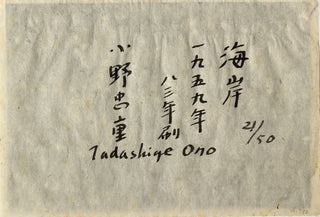 海岸
一九五九年
八三年刷
21/50
小野忠重
Tadashige Ono